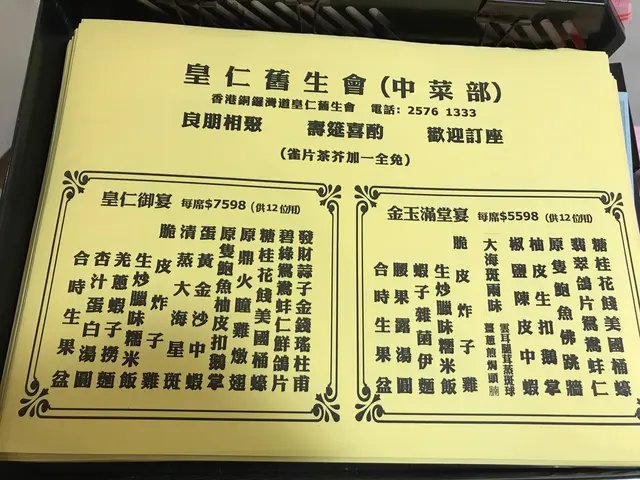 皇仁舊生會(中菜部)
香港銅鑼灣道皇仁舊生會 電話: 2576 1333
良朋相聚 壽筵喜酌 歡迎訂座
(雀片茶芥加一全免)
皇仁御宴 每席$7598 (供12位用)
發財蒜子金錢瑤柱甫
碧綠鴛鴦蚌仁鮮鴿片
糖桂花餞美國桶蠔
原鼎火瞳雞燉翅
原隻鮑魚柚皮扣鵝掌
蛋黃金沙中蝦
清蒸大海星斑
脆皮炸子雞
生炒臘味糯米飯
羌蔥蝦子撈麵
杏汁蛋白湯圓
合時生果盆
金玉滿堂宴 每席$5598 (供12位用)
糖桂花餞美國桶蠔
翡翠鴿片鴛鴦蚌仁
原隻鮑魚佛跳牆
柚皮生扣鵝掌
椒鹽陳皮中蝦
大海斑兩味
雲耳勝茸蒸斑球
薑蔥煎焗頭腩
脆皮炸子雞
生炒臘味糯米飯
蝦子雜菌伊麵
腰果露湯圓
合時生果盆